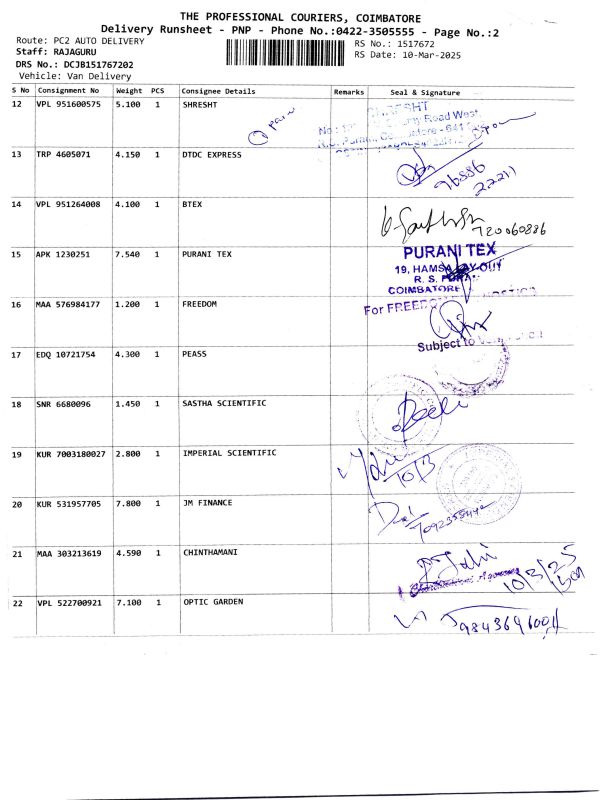 THE PROFESSIONAL COURIERS, COIMBATORE
Delivery Runsheet - PNP - Phone No.:0422-3505555 - Page No.:2
Route: PC2 AUTO DELIVERY
RS No.: 1517672
Staff: RAJAGURU
RS Date: 10-Mar-2025
DRS No.: DCJB151767202
Vehicle: Van Delivery
S No Consignment No Weight PCS Consignee Details Remarks Seal & Signature
12 VPL 951600575 5.100 1 SHRESHT
Road West
13 TRP 4605071 4.150 1 DTDC EXPRESS
76886
22211
14 VPL 951264008 4.100 1 BTEX
720060886
15 APK 1230251 7.540 1 PURANI TEX
PURANI TEX
19, HAMSA LAY OUT
R. S. PURAM
COIMBATORE
16 MAA 576984177 1.200 1 FREEDOM
For FREEDOM
Subject to
17 EDQ 10721754 4.300 1 PEASS
18 SNR 6680096 1.450 1 SASTHA SCIENTIFIC
19 KUR 7003180027 2.800 1 IMPERIAL SCIENTIFIC
10/3
20 KUR 531957705 7.800 1 JM FINANCE
21 MAA 303213619 4.590 1 CHINTHAMANI
10/3/25
22 VPL 522700921 7.100 1 OPTIC GARDEN